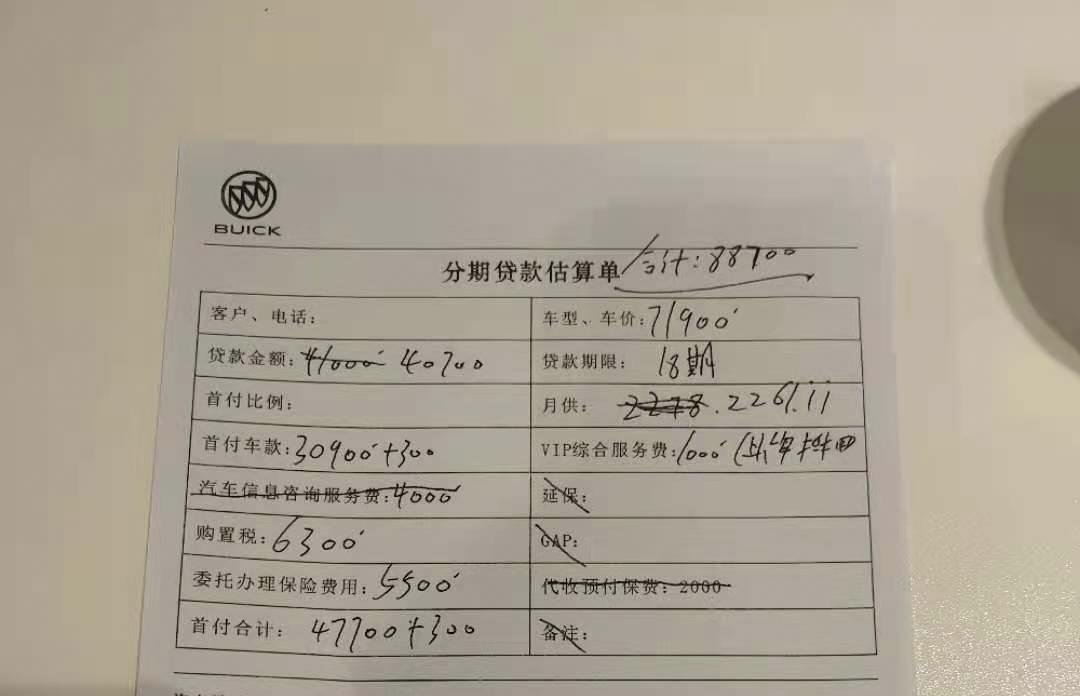 BUICK
分期贷款估算单 合计:88700
客户、电话:
车型、车价:71900
贷款金额:41000 40700
贷款期限: 18期
首付比例:
月供: 2278.2261.11
首付车款:30900+300
VIP综合服务费:1000
汽车信息咨询服务费:4000
延保:
购置税:6300
GAP:
委托办理保险费用:5500
代收预付保费:2000
首付合计: 47700+300
备注: